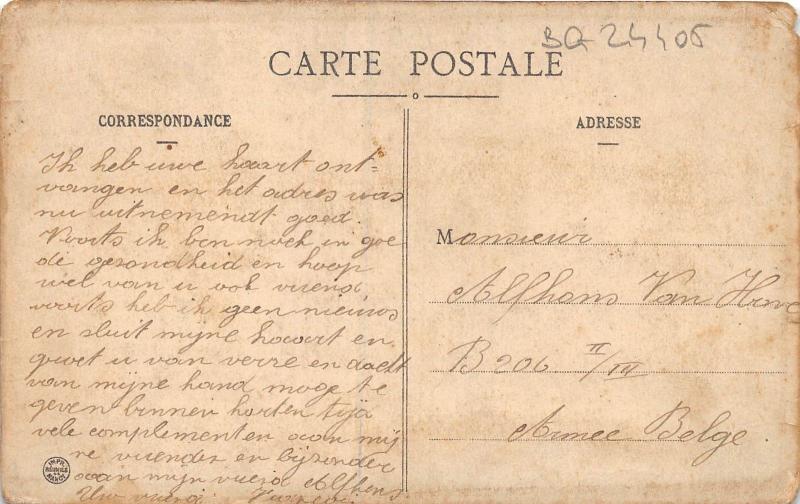 BQ 24405
CARTE POSTALE
CORRESPONDANCE
Ik heb uwe kaart ont=
vangen en het adres was
nu uitnemendt goed.
Voorts ik ben noch in goe
de gezondheid en hoop
wel van u ook vriend
voorts heb ik geen nieuws
en sluit mijne kaart en
groet u van verre en dacht
van mijne hand moge te
geven binnen korten tijd
vele complementen aan mij
ne vrienden en bijzonder
aan mijn vriend Alfhons
Uw vriend
IMPR. RÉUNIES NANCY
ADRESSE
Monsieur
Alfhons Van Hove
B 206 II/III
Armee Belge